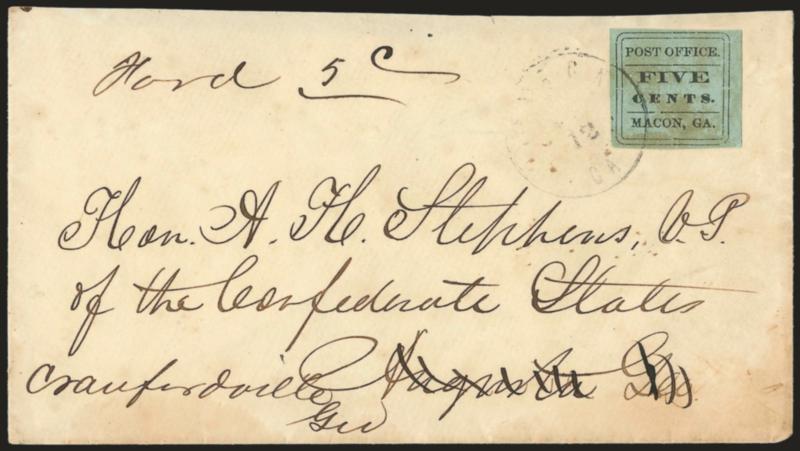 Ford 5c
POST OFFICE.
FIVE
CENTS.
MACON, GA.
12
GA
Hon. A. H. Stephens, V.P.
of the Confederate States
Crawfordville Augusta Geo.
Geo